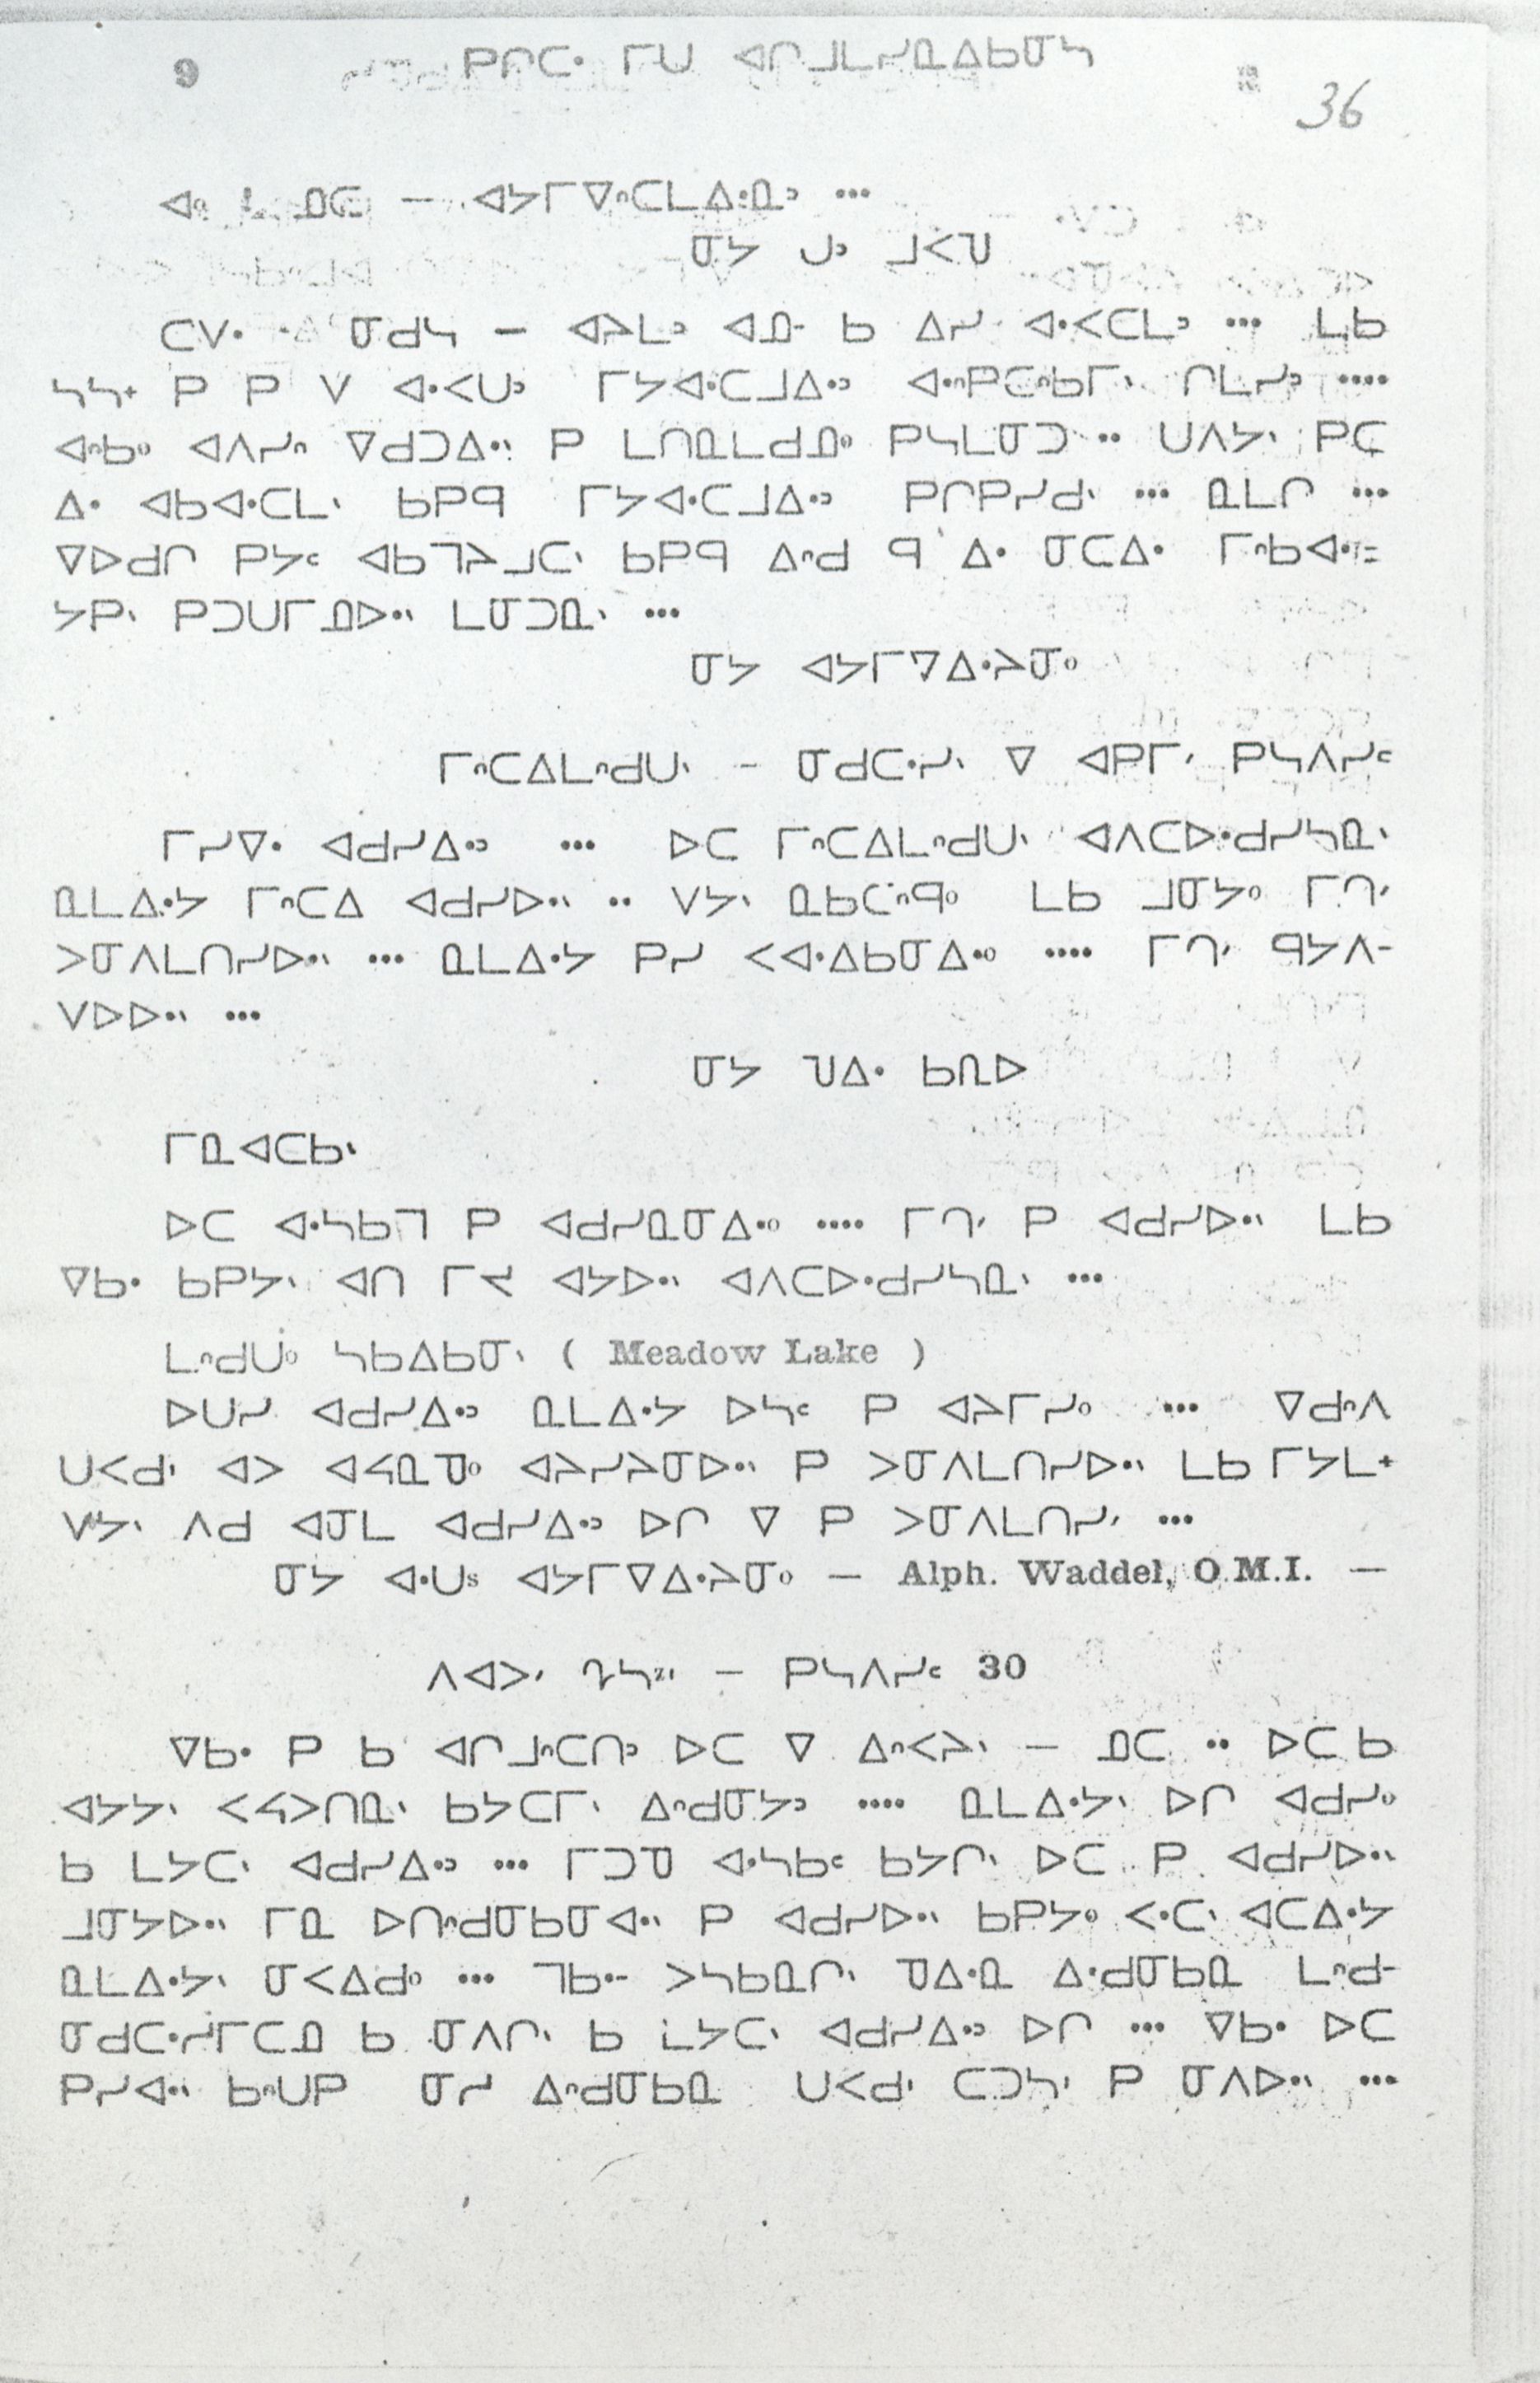 9 ᑭᒋᑕᐧ ᒥᑌ ᐊᒋᒧᒪᓯᓇᐃᑲᓂᓴ
36
ᐊᐤ ᓅᑕ — ᐊᔭᒥᐁᐢᑕᒪᐃᐧᓇᐣ ...
ᓂᔭ ᑌᐣ ᒧᐸᓀ
ᑕᐯᐧ ᓂᑯᓴ — ᐊᔨᒪᐣ ᐊᓄ- ᑲ ᐃᓯ ᐊᐧᐸᑕᒪᐣ ... ᒪᑲ
ᓴᓴᐩ ᑭ ᑭ ᐯ ᐊᐧᐸᑌᐣ ᒥᔭᐊᐧᑕᒧᐃᐧᐣ ᐊᐧᐢᑭᑕᐢᑲᒥᐠ ᑎᒪᓯᐣ ....
ᐊᐢᑲᐤ ᐊᐱᓯᐢ ᐁᑯᑐᐃᐧᐠ ᑭ ᒪᑎᓇᒪᑯᓄᐤ ᑭᓴᒪᓂᑐ .. ᑌᐱᔭᐠ ᑭᑕ
ᐃᐧ ᐊᑲᐊᐧᑕᒪᐠ ᑲᑭᑫ ᒥᔭᐊᐧᑕᒧᐃᐧᐣ ᑭᒋᑭᓯᑯᐠ ... ᓇᒪᒋ ...
ᐁᐅᑯᒋ ᑭᔭᐨ ᐊᑲᒣᔨᒧᑕᐠ ᑲᑭᑫ ᐃᐢᑯ ᑫ ᐃᐧ ᓂᑕᐃᐧ ᒥᐢᑲᐊᐧ=
ᔭᑭᐠ ᑭᑐᑌᒥᓄᐅᐧᐠ ᒪᓂᑐᓇᐠ ...
ᓂᔭ ᐊᔭᒥᐁᐃᐧᔨᓂᐤ
ᒥᐢᑕᐃᒪᐢᑯᑌᐠ — ᓂᑯᑕᐧᓯᐠ ᐁ ᐊᑭᒥᐟ ᑭᓴᐱᓯᐨ
ᒥᓯᐁᐧ ᐊᑯᓯᐃᐧᐣ ... ᐅᑕ ᒥᐢᑕᐃᒪᐢᑯᑌᐠ ᐊᐱᑕᐅᐧᑯᓯᓴᓇᐠ
ᓇᒪᐃᐧᔭ ᒥᐢᑕᐃ ᐊᑯᓯᐅᐧᐠ .. ᐯᔭᐠ ᓇᑲᑕᐢᑫᐤ ᒪᑲ ᒧᓂᔭᐤ ᒥᒉᐟ
ᐳᓂᐱᒪᑎᓯᐅᐧᐠ ... ᓇᒪᐃᐧᔭ ᑭᓯ ᐸᐊᐧᐃᑲᓂᐃᐧᐤ .... ᒥᒉᐟ ᑫᔭᐱ-
ᐯᐅᐅᐧᐠ ...
ᓂᔭ ᓀᐃᐧ ᑲᑎᐅ
ᒥᓇᐊᑕᑲᐠ
ᐅᑕ ᐊᐧᓴᑲᒣ ᑭ ᐊᑯᓯᓇᓂᐃᐧᐤ .... ᒥᒉᐟ ᑭ ᐊᑯᓯᐅᐧᐠ ᒪᑲ
ᐁᑲᐧ ᑲᑭᔭᐠ ᐊᑎ ᒥᔪ ᐊᔭᐅᐧᐠ ᐊᐱᑕᐅᐧᑯᓯᓴᓇᐠ ...
ᒪᐢᑯᑌᐤ ᓴᑲᐃᑲᓂᐠ ( Meadow Lake )
ᐅᑌᓯ ᐊᑯᓯᐃᐧᐣ ᓇᒪᐃᐧᔭ ᐅᓴᐨ ᑭ ᐊᔨᒥᓯᐤ ... ᐁᑯᐢᐱ
ᑌᐸᑯᐠ ᐊᐳ ᐊᔦᓇᓀᐤ ᐊᔨᓯᔨᓂᐅᐧᐠ ᑭ ᐳᓂᐱᒪᑎᓯᐅᐧᐠ ᒪᑲ ᒥᔭᒪᐩ
ᐯᔭᐠ ᐱᑯ ᐊᓂᒪ ᐊᑯᓯᐃᐧᐣ ᐅᒋ ᐁ ᑭ ᐳᓂᐱᒪᑎᓯᐟ ...
ᓂᔭ ᐊᐧᑌᐢ ᐊᔭᒥᐁᐃᐧᔨᓂᐤ — Alph. Waddel, O.M.I. —
ᐱᐊᐳᐟ ᒉᓴᕽ — ᑭᓴᐱᓯᐨ 30
ᐁᑲᐧ ᑭ ᑲ ᐊᒋᒧᐢᑕᑎᐣ ᐅᑕ ᐁ ᐃᐢᐸᔨᐠ — ᓄᑕ .. ᐅᑕ ᑲ
ᐊᔭᔭᐠ ᐸᔦᐳᑎᓇᐠ ᑲᔭᑕᒥᐠ ᐃᐢᑯᓂᔭᐣ .... ᓇᒪᐃᐧᔭᐠ ᐅᒋ ᐊᑯᓯᐤ
ᑲ ᒪᔭᑕᐠ ᐊᑯᓯᐃᐧᐣ ... ᒥᑐᓀ ᐊᐧᓴᑲᐨ ᑲᔭᒋᐠ ᐅᑕ ᑭ ᐊᑯᓯᐅᐧᐠ
ᒧᓂᔭᐅᐧᐠ ᒥᓇ ᐅᑎᐢᑯᓂᑲᓂᐊᐧᐠ ᑭ ᐊᑯᓯᐅᐧᐠ ᑲᑭᔭᐤ ᐸᐧᑕᐠ ᐊᑕᐃᐧᔭ
ᓇᒪᐃᐧᔭᐠ ᓂᐸᐃᑯᐤ ... ᒣᑲᐧ- ᐳᓴᑲᓇᒋᐠ ᓀᐃᐧᓇ ᐃᐧᑯᓂᑲᓇ ᒪᐢᑯ-
ᓂᑯᑕᐧᓯᒥᑕᓄ ᑲ ᓂᐱᒋᐠ ᑲ ᒪᔭᑕᐠ ᐊᑯᓯᐃᐧᐣ ᐅᒋ ... ᐁᑲᐧ ᐅᑕ
ᑭᓯᐊᐧᐠ ᑲᐢᑌᑭ ᓂᓯ ᐃᐢᑯᓂᑲᓇ ᑌᐸᑯᐠ ᑕᑐᓴᐠ ᑭ ᓂᐱᐅᐧᐠ ...